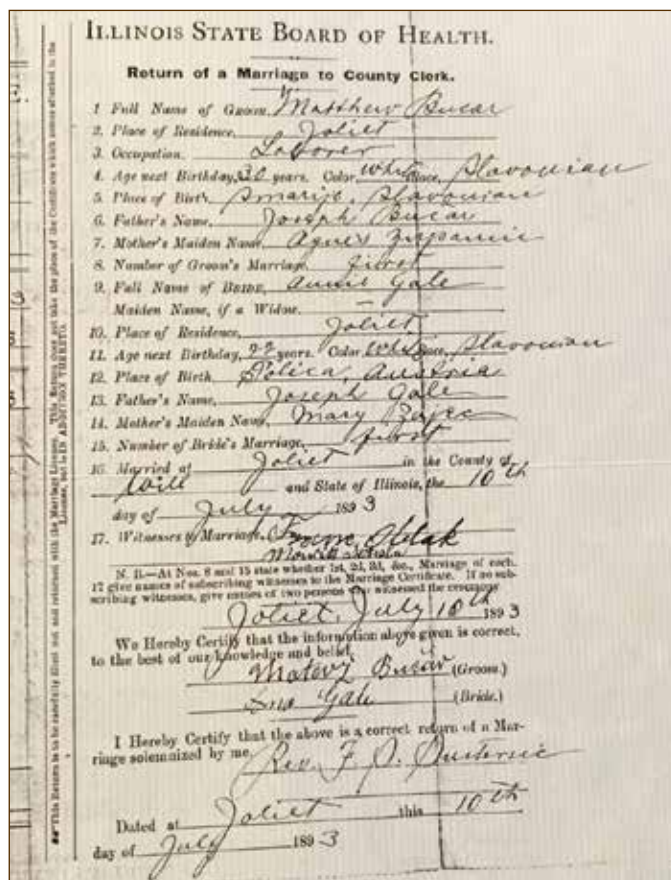 ILLINOIS STATE BOARD OF HEALTH.
Return of a Marriage to County Clerk.
1 Full Name of Groom, Matthew Bucar
2. Place of Residence, Joliet
3. Occupation, Laborer
4. Age next Birthday, 30 years. Color, White Race, Slavonian
5. Place of Birth, Smarije, Slavonian
6. Father's Name, Joseph Bucar
7. Mother's Maiden Name, Agnes Zupancic
8. Number of Groom's Marriage, first
9. Full Name of BRIDE, Annie Gale
Maiden Name, if a Widow, —
10. Place of Residence, Joliet
11. Age next Birthday, 22 years. Color, White Race, Slavonian
12. Place of Birth, Polica, Austria
13. Father's Name, Joseph Gale
14. Mother's Maiden Name, Mary
15. Number of Bride's Marriage, first
16. Married at Joliet in the County of
Will and State of Illinois, the 10th
day of July 1893
17. Witnesses to Marriage,
N. B.—At Nos. 8 and 15 state whether 1st, 2d, 3d, &c., Marriage of each.
17 give names of subscribing witnesses to the Marriage Certificate. If no sub-
scribing witnesses, give names of two persons who witnessed the ceremony
Joliet, July 10th 1893
We Hereby Certify that the information above given is correct,
to the best of our knowledge and belief,
Matevž Bučar (Groom.)
Gale (Bride.)
I Hereby Certify that the above is a correct return of a Mar-
riage solemnized by me, Rev. F. S.
Dated at Joliet this 10th
day of July 1893
This Return is to be carefully filled out and returned with the Marriage License. This Return does not take the place of the Certificate which comes attached to the
License, but is IN ADDITION THERETO.